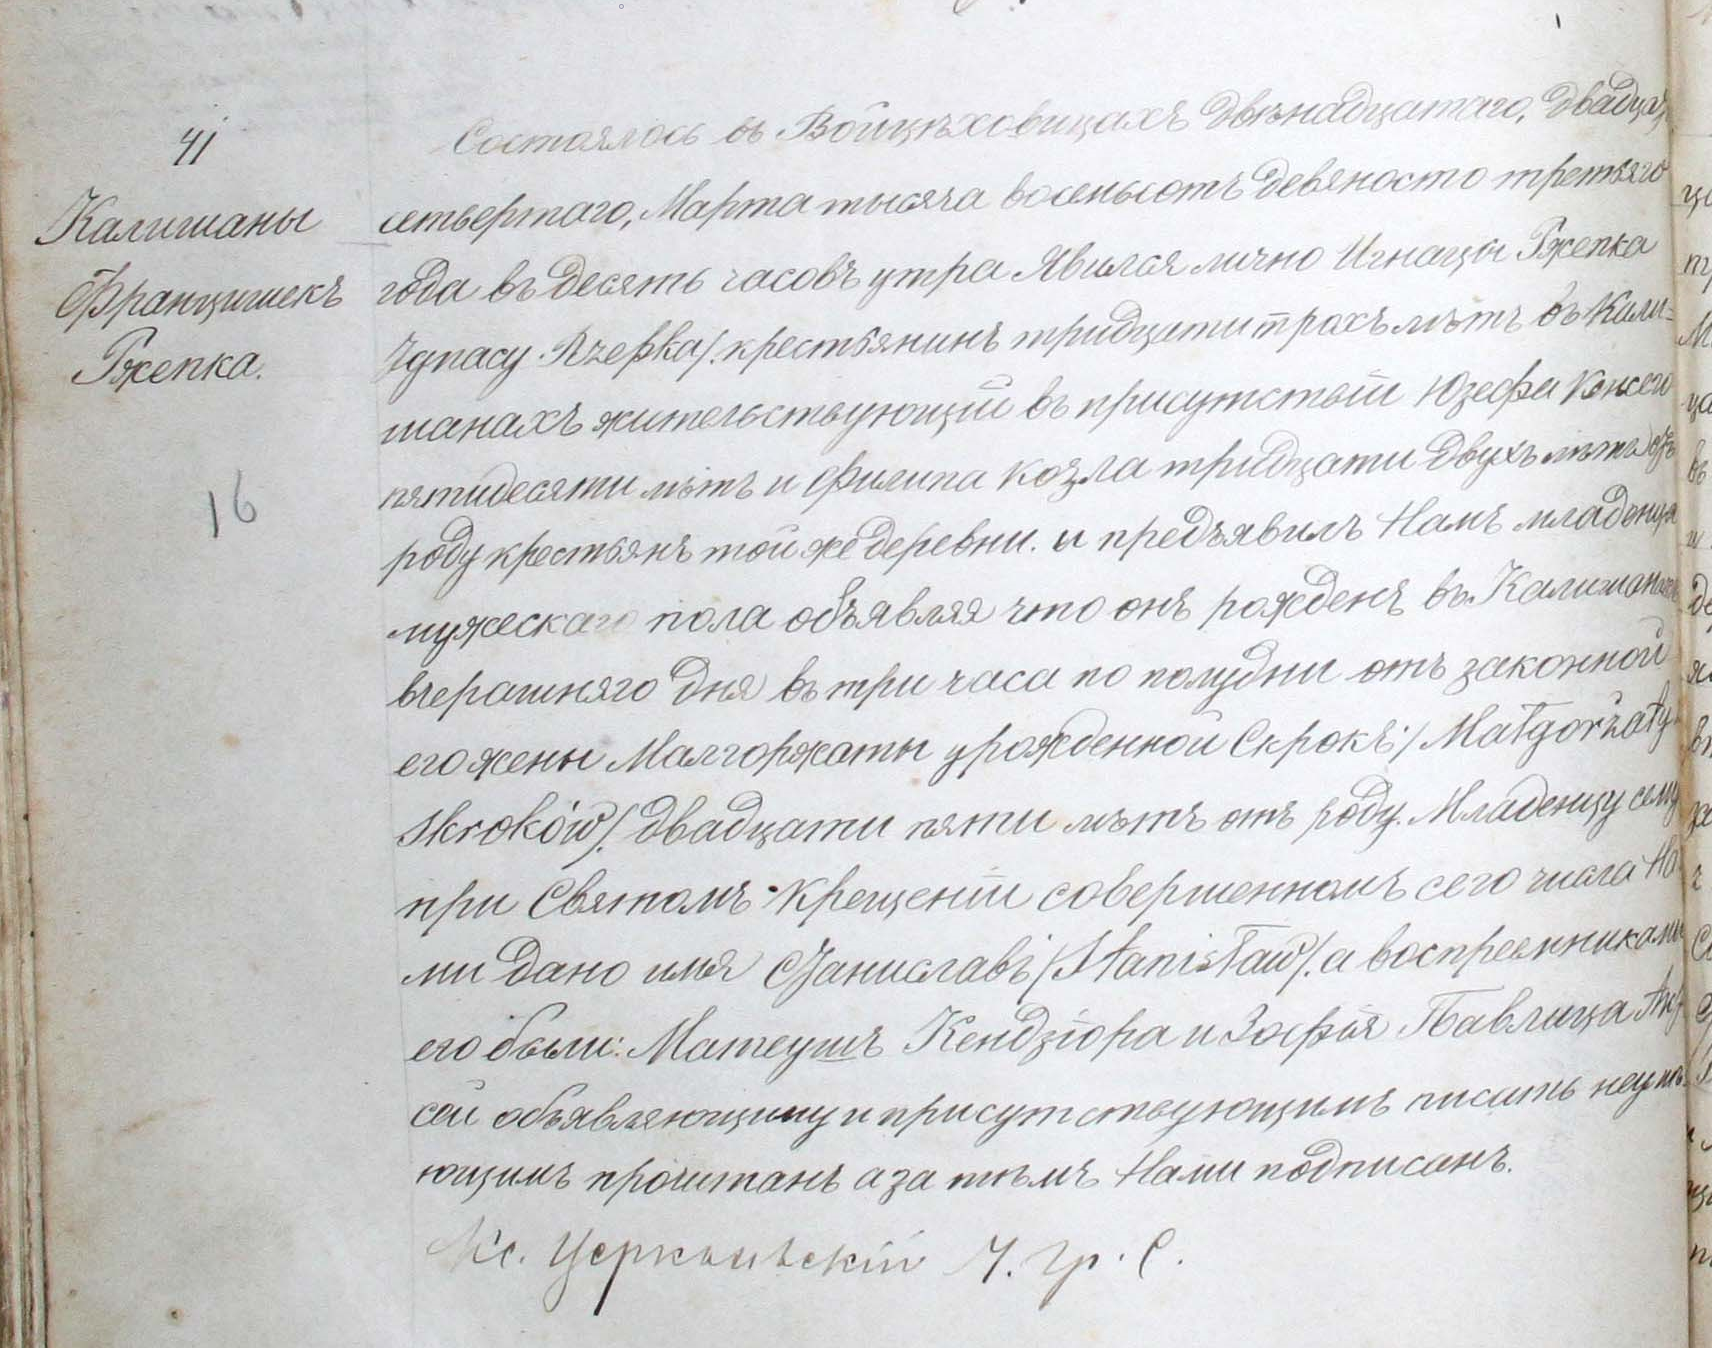 41
Калишаны
Францишекъ
Ржепка.
16
Состоялось въ Войцѣховицахъ двѣнадцатаго, двадцать
четвертаго, Марта тысяча восемьсотъ девяносто третьяго
года въ десять часовъ утра Явился лично Игнацы Ржепка
Ignacy Rzepka/. крестьянинъ тридцати трехъ лѣтъ въ Кали=
шанахъ жительствующій въ присутствіи Юзефа
пятидесяти лѣтъ и Филипа Козла тридцати двухъ лѣтъ отъ
роду крестьянъ той же деревни. и предъявилъ Намъ младенца
мужескаго пола объявляя что онъ рожденъ въ Калишанахъ
вчерашняго дня въ три часа по полудни отъ законной
его жены Малгоржаты урожденной Скрокъ/ Małgorzaty
Skroków/. двадцати пяти лѣтъ отъ роду. Младенцу сему
при Святомъ Крещеніи совершенномъ сего числа На
ми дано имя Станиславъ/Stanisław/. а воспреемниками
его были: Матеушъ Кендзіора и Зофія Павлица Актъ
сей объявляющему и присутствующимъ писать неумѣ
ющимъ прочитанъ а за тѣмъ Нами подписанъ.
Кс. Ч. Гр. С.